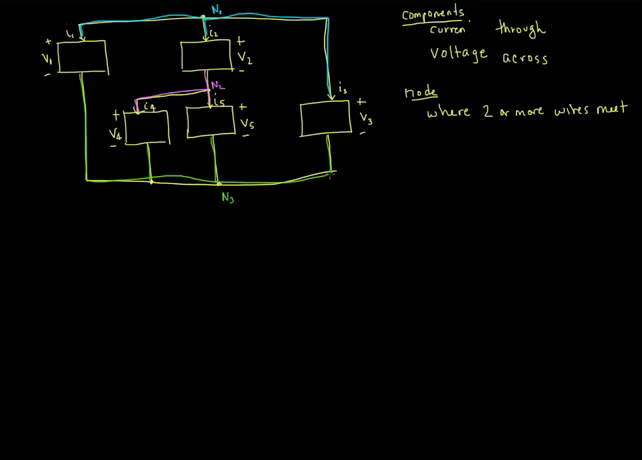 N₁
i₁
i₂
+
V₁
-
+
V₂
-
N₂
i₄
i₅
i₃
+
V₄
-
+
V₅
-
+
V₃
-
N₃
Components
Curren through
Voltage across
node
where 2 or more wires meet